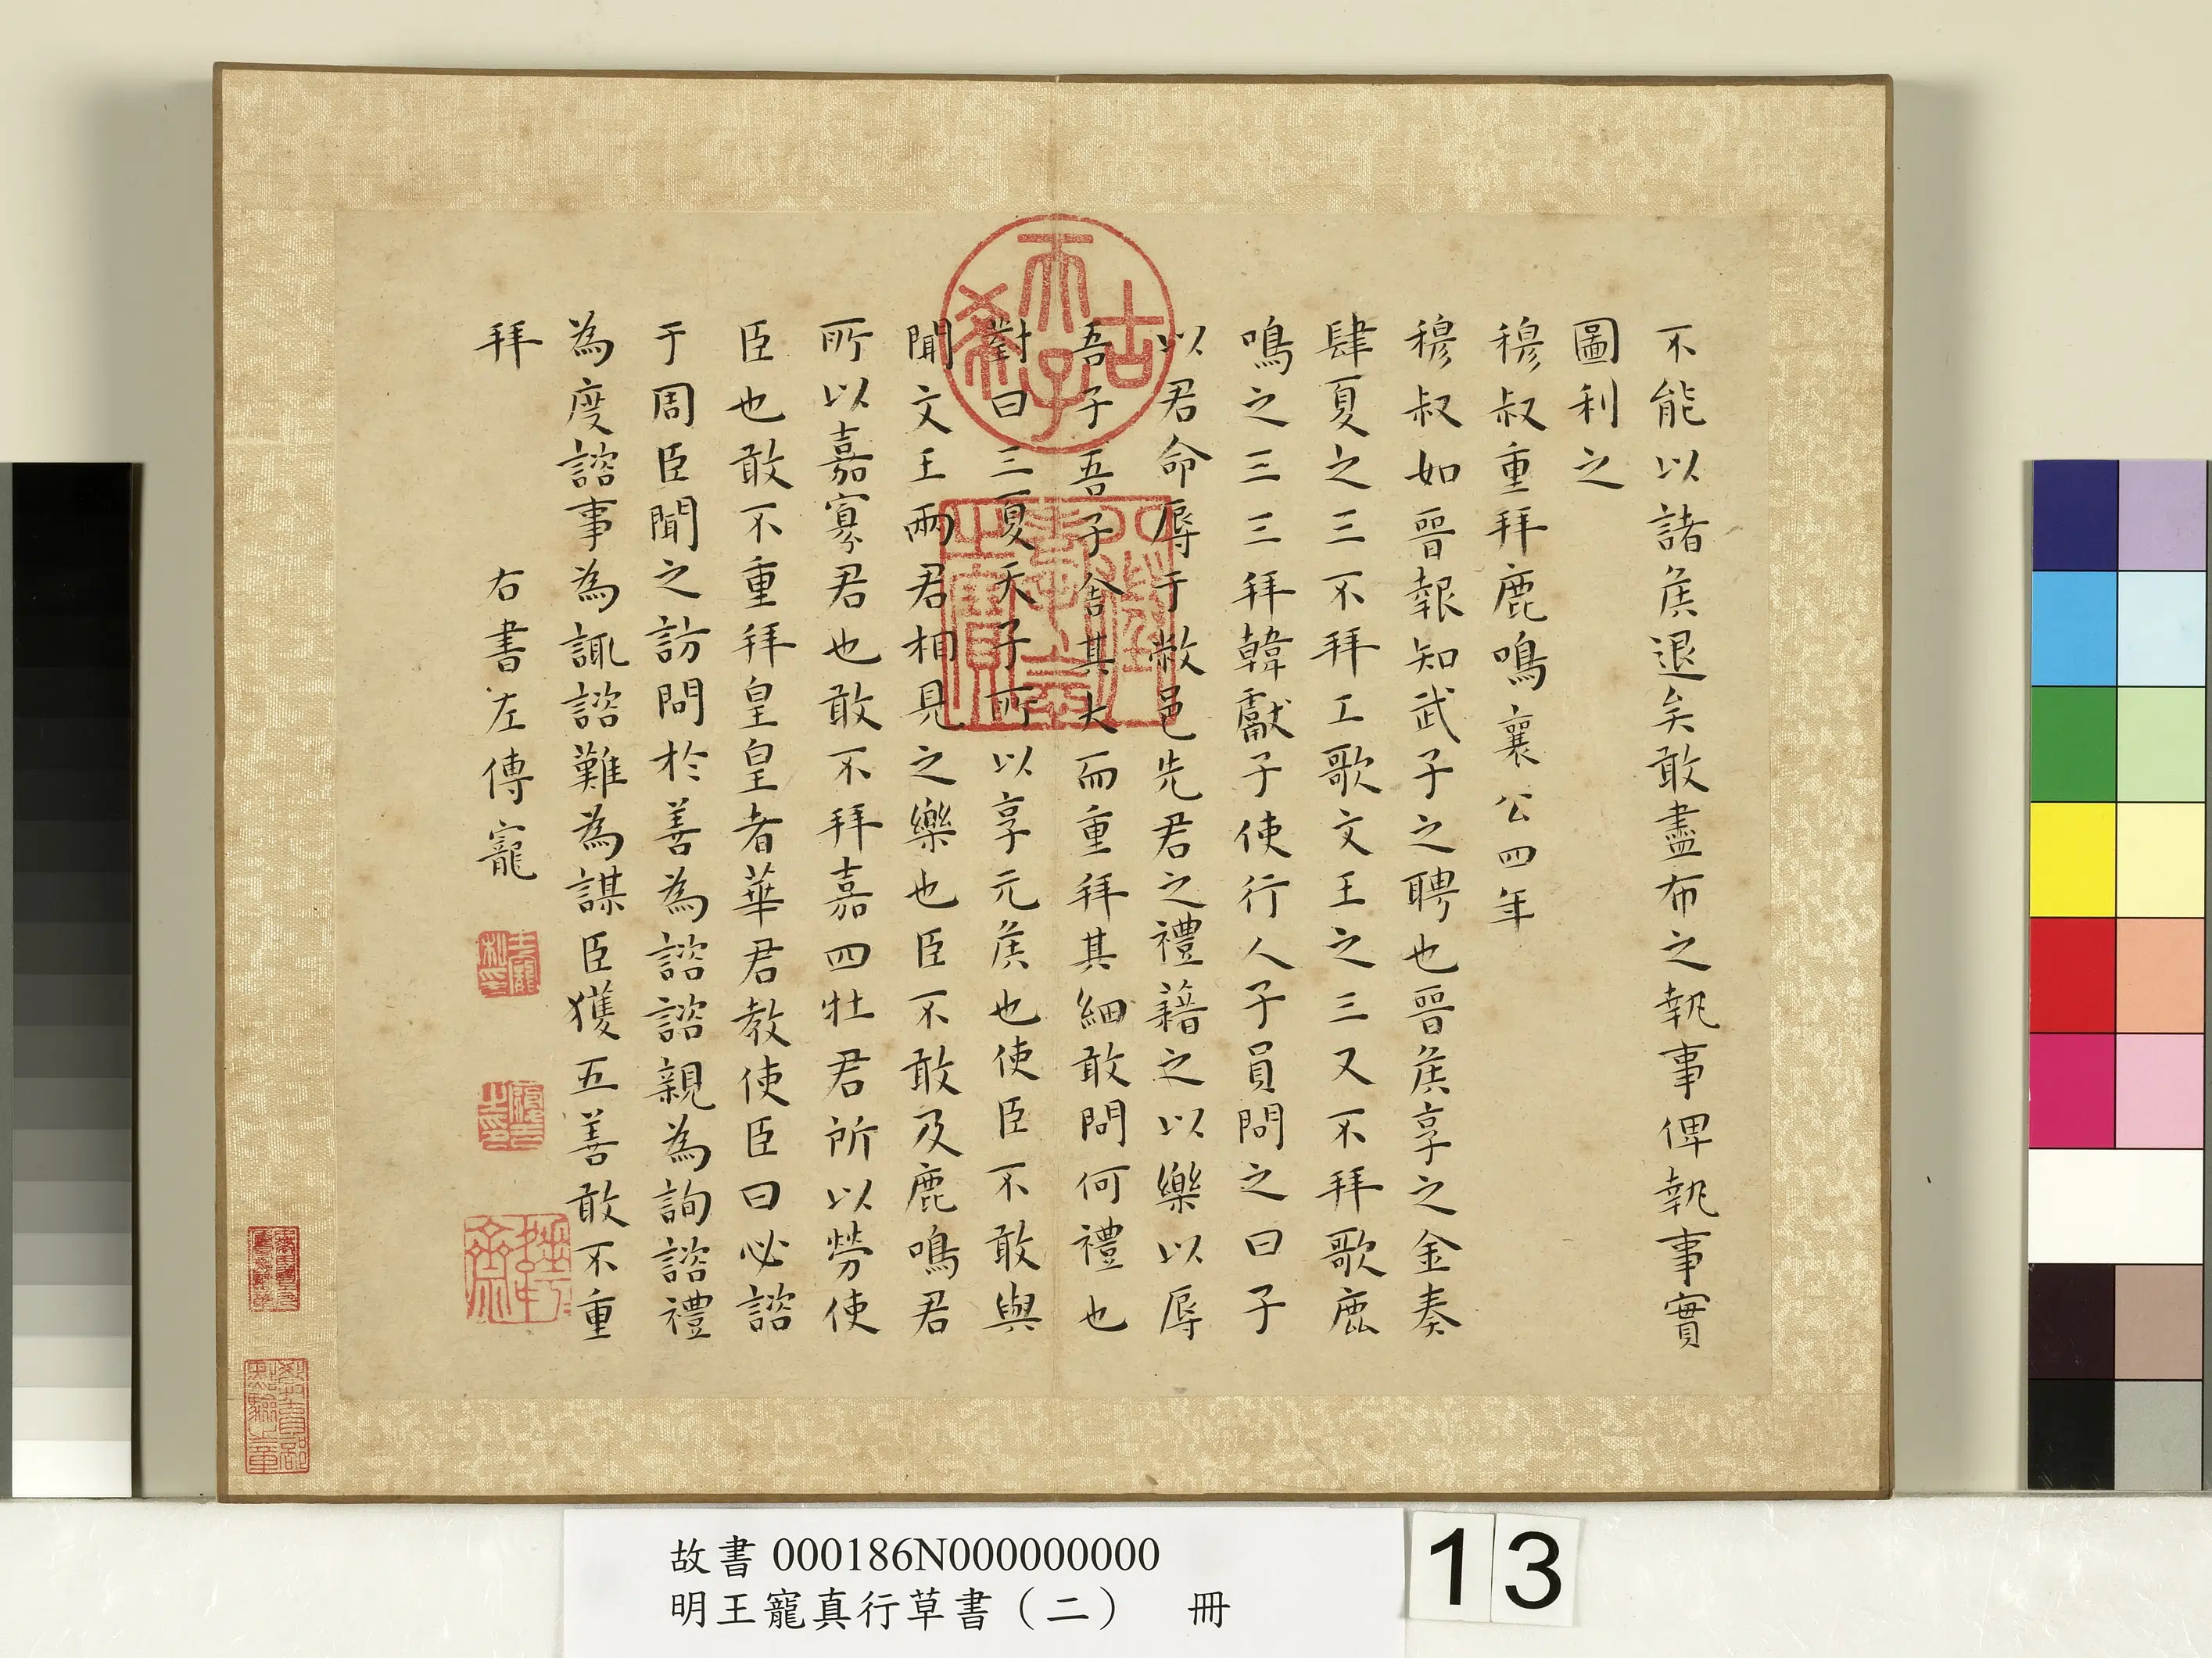 不能以諸侯退矣敢盡布之執事俾執事實
圖利之
穆叔重拜鹿鳴 襄公四年
穆叔如晉報知武子之聘也晉侯享之金奏
肆夏之三不拜工歌文王之三又不拜歌鹿
鳴之三三拜韓獻子使行人子員問之曰子
以君命辱于敝邑先君之禮藉之以樂以辱
吾子吾子舍其大而重拜其細敢問何禮也
對曰三夏天子所以享元侯也使臣不敢與
聞文王兩君相見之樂也臣不敢及鹿鳴君
所以嘉寡君也敢不拜嘉四牡君所以勞使
臣也敢不重拜皇皇者華君教使臣曰必諮
于周臣聞之訪問於善為諮諮親為詢諮禮
為度諮事為諏諮難為謀臣獲五善敢不重
拜 右書左傳寵
古希天子
八徵耄念之寶
王寵私印
履吉之印
故書 000186N000000000
明王寵真行草書（二） 冊
13